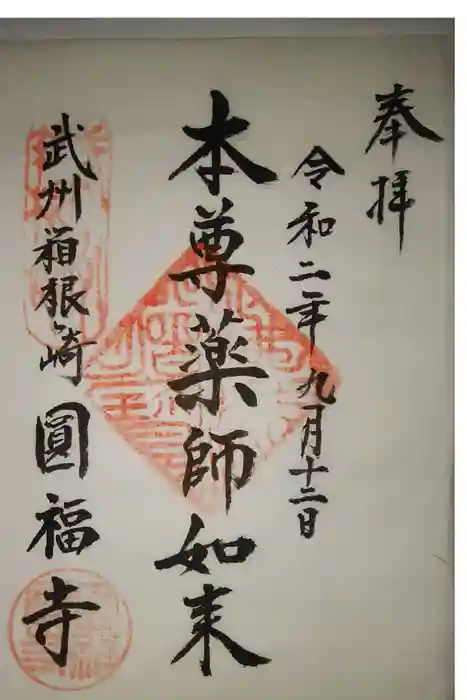 奉拝
令和二年九月十二日
本尊薬師如来
武州箱根崎圓福寺